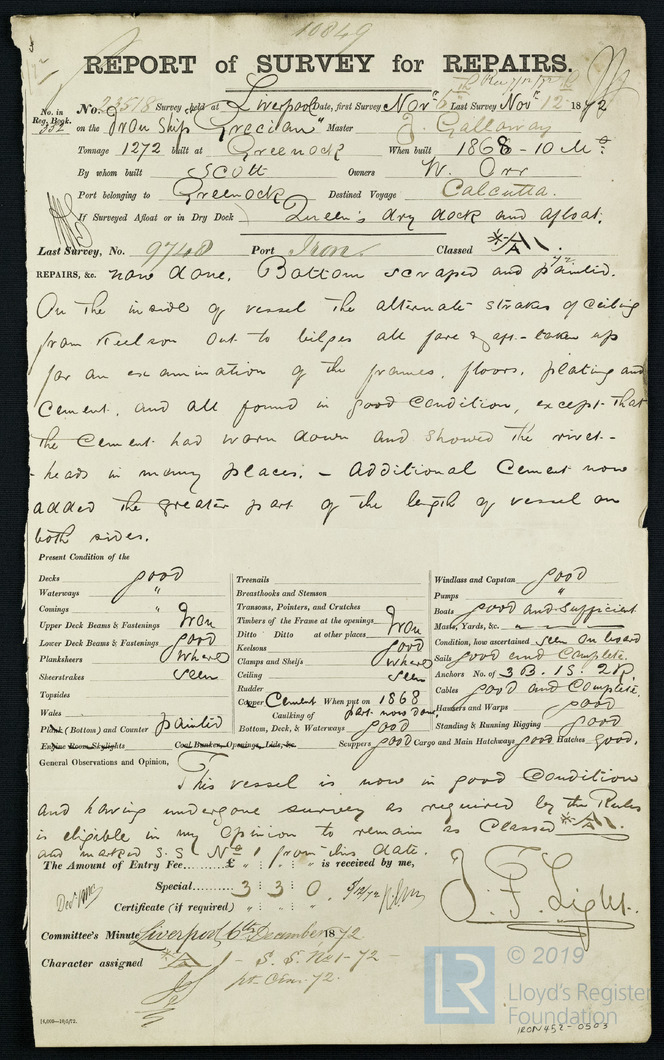 10849
REPORT of SURVEY for REPAIRS.
No. in Reg. Book.
332
No. 23518 Survey held at Liverpool Date, first Survey Novr 6th Last Survey Novr 12th 1872
on the Iron Ship "Grecian" Master J. Galloway
Tonnage 1272 built at Greenock When built 1868 - 10 Mo.
By whom built Scott Owners W. Orr
Port belonging to Greenock Destined Voyage Calcutta.
If Surveyed Afloat or in Dry Dock Queen's dry dock and afloat.
Last Survey, No. 9748 Port Iron Classed A1.
REPAIRS, &c. now done. Bottom scraped and painted.
On the inside of vessel the alternate strakes of Ceiling
from Keelson out to bilges all fore & aft - taken up
for an examination of the frames, floors, plating and
Cement, and all found in good Condition, except that
the Cement had worn down and showed the rivet-
-heads in many places. - Additional Cement now
added the greater part of the length of vessel on
both sides.
Present Condition of the
Decks good
Waterways "
Comings "
Upper Deck Beams & Fastenings Iron
Lower Deck Beams & Fastenings good
Planksheers where
Sheerstrakes seen
Topsides
Wales
Plank (Bottom) and Counter painted
Engine Room Skylights Coal Bunker, Openings, Lids, &c.
Treenails
Breasthooks and Stemson
Transoms, Pointers, and Crutches
Timbers of the Frame at the openings Iron
Ditto Ditto at other places
Keelsons good
Clamps and Shelfs where
Ceiling seen
Rudder
Copper Cement When put on 1868
Caulking of part now done.
Bottom, Deck, & Waterways good
Scuppers good Cargo and Main Hatchways good Hatches good.
Windlass and Capstan good
Pumps "
Boats good and Sufficient
Masts, Yards, &c.
Condition, how ascertained seen on board
Sails good and Complete.
Anchors No. of 3 B. 1 S. 2 K.
Cables good and Complete.
Hawsers and Warps good
Standing & Running Rigging good
General Observations and Opinion, This vessel is now in good Condition
and having undergone survey as required by the Rules
is eligible in my opinion to remain as Classed A1.
and marked S.S. No 1 from this date.
The Amount of Entry Fee......£ " : " : " is received by me,
Special......... 3 3 0
Certificate (if required) " : " :
J. F. Light.
Committee's Minute Liverpool 6th December 1872
Character assigned A1 - S. S. No 1 - 72 -
pt. Cem. 72.
© 2019
LR
Lloyd's Register
Foundation
IRON452-0503